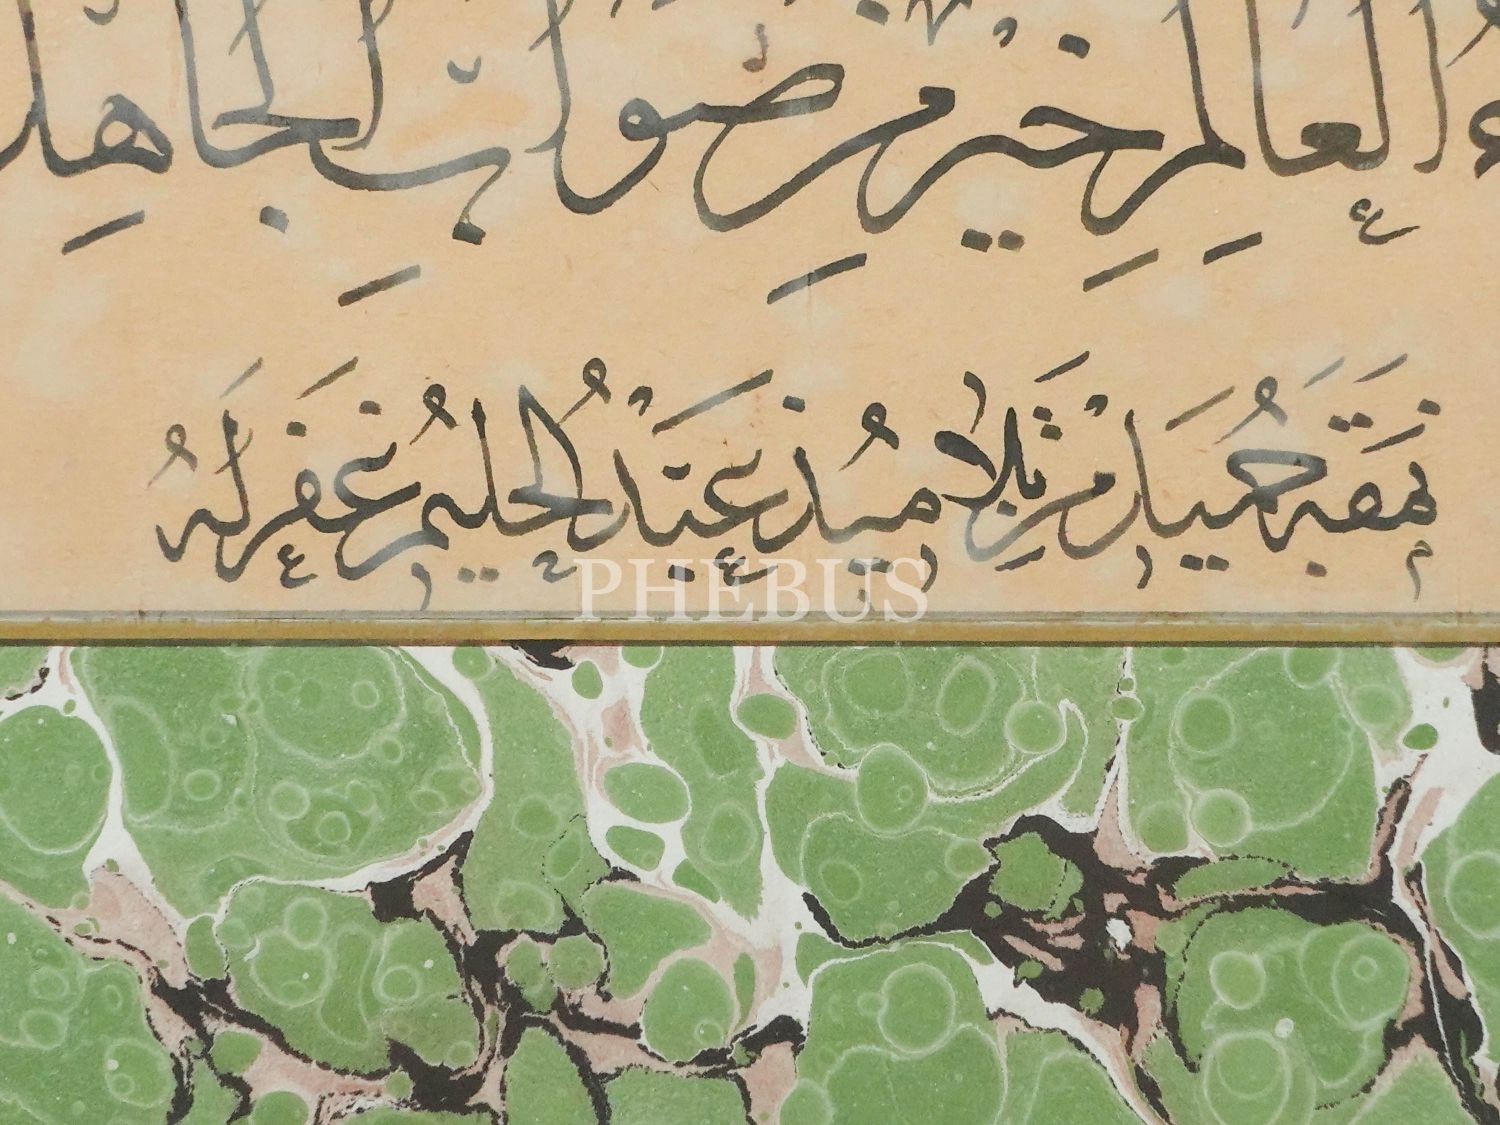 ء العالم خير من صواب الجاهل
نمقه حميد من تلاميذ عبد الحليم غفر له
PHEBUS